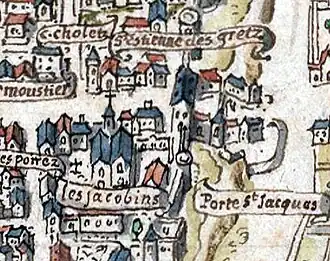 C. cholet
S. estienne des gretz
moustier
es povrez
les Jacobins
Porte St. Jacques